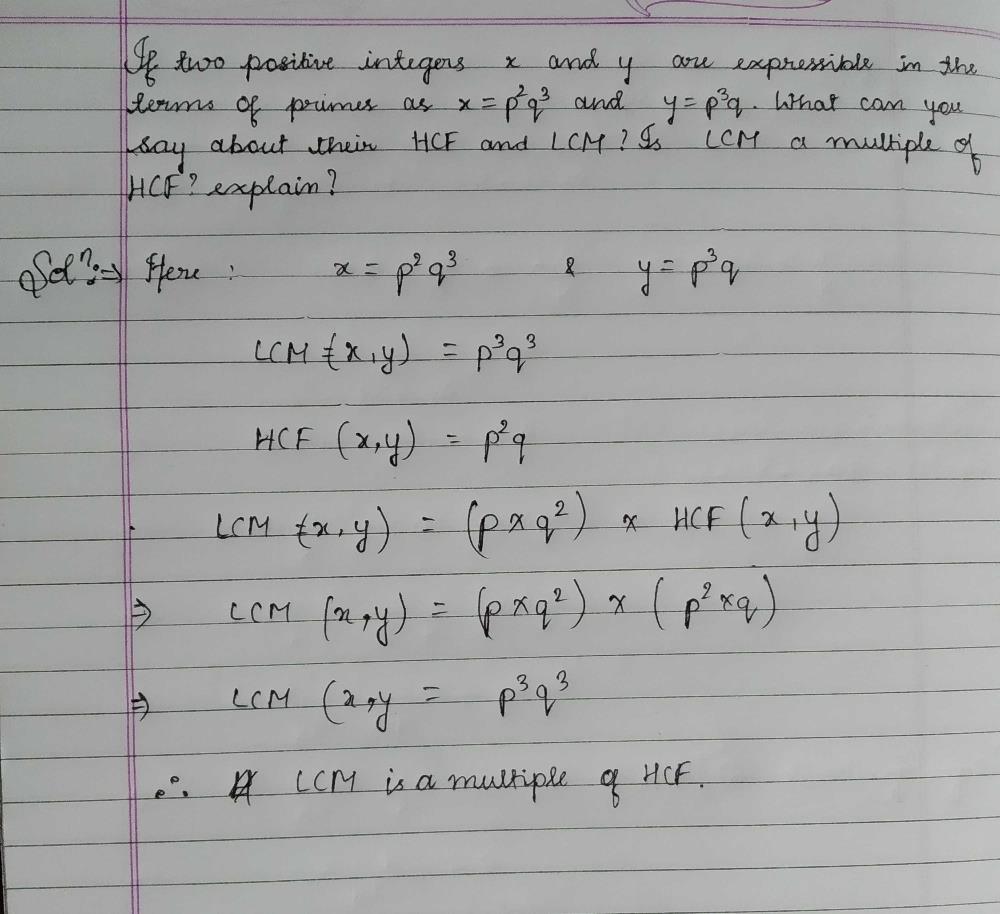 If two positive integers x and y are expressible in the
terms of primes as x = p²q³ and y = p³q. What can you
say about their HCF and LCM? Is LCM a multiple of
HCF? explain?
Solⁿ:⇒ Here : x = p²q³ & y = p³q
LCM (x,y) = p³q³
HCF (x,y) = p²q
LCM (x,y) = (p×q²) × HCF (x,y)
⇒ LCM (x,y) = (p×q²) × (p²×q)
⇒ LCM (x,y = p³q³
∴ LCM is a multiple of HCF.